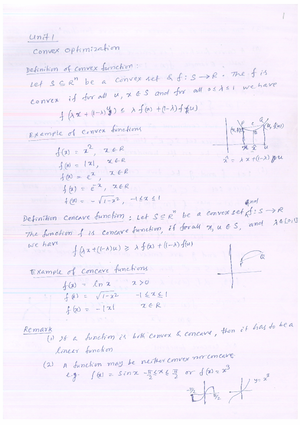 1
Unit 1
Convex Optimization
Definition of Convex function:
Let S ⊆ Rⁿ be a convex set & f: S → R. The f is
convex if for all u, x ∈ S and for all 0 ≤ λ ≤ 1 we have
f(λx + (1-λ)u) ≤ λ f(x) + (1-λ) f(u)
Example of Convex functions
f(x) = x², x ∈ R
f(x) = |x|, x ∈ R
f(x) = eˣ, x ∈ R
f(x) = e⁻ˣ, x ∈ R
f(x) = -√1-x², -1 ≤ x ≤ 1
Definition Concave function: Let S ⊆ Rⁿ be a convex set f: S → R
The function f is concave function, if for all x, u ∈ S, and
we have
f(λx + (1-λ)u) ≥ λ f(x) + (1-λ) f(u)
Example of Concave functions
f(x) = ln x x > 0
f(x) = √1-x² -1 ≤ x ≤ 1
f(x) = -|x| x ∈ R
Remark
(1) If a function is both convex & concave, then it has to be a
linear function
(2) A function may be neither convex nor concave
e.g. f(x) = sin x or f(x) = x³